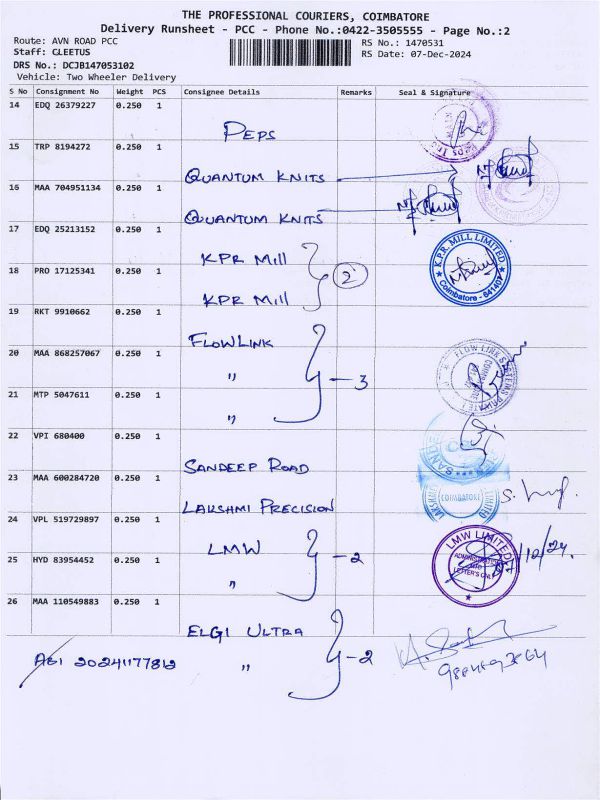 THE PROFESSIONAL COURIERS, COIMBATORE
Delivery Runsheet - PCC - Phone No.:0422-3505555 - Page No.:2
Route: AVN ROAD PCC
Staff: CLEETUS
DRS No.: DCJB147053102
Vehicle: Two Wheeler Delivery
RS No.: 1470531
RS Date: 07-Dec-2024
S No Consignment No Weight PCS Consignee Details Remarks Seal & Signature
14 EDQ 26379227 0.250 1
PEPS
15 TRP 8194272 0.250 1
QUANTUM KNITS
16 MAA 704951134 0.250 1
QUANTUM KNITS
17 EDQ 25213152 0.250 1
KPR Mill
2
K.P.R. MILL LIMITED
Coimbatore - 641407
18 PRO 17125341 0.250 1
KPR Mill
19 RKT 9910662 0.250 1
FLOWLINK
20 MAA 868257067 0.250 1
" - 3
21 MTP 5047611 0.250 1
"
22 VPI 680400 0.250 1
SANDEEP ROAD
23 MAA 600284720 0.250 1
LAKSHMI PRECISION
COIMBATORE
24 VPL 519729897 0.250 1
LMW - 2
LMW LIMITED
25 HYD 83954452 0.250 1
"
26 MAA 110549883 0.250 1
ELGI ULTRA
AGI 20241177812 " - 2